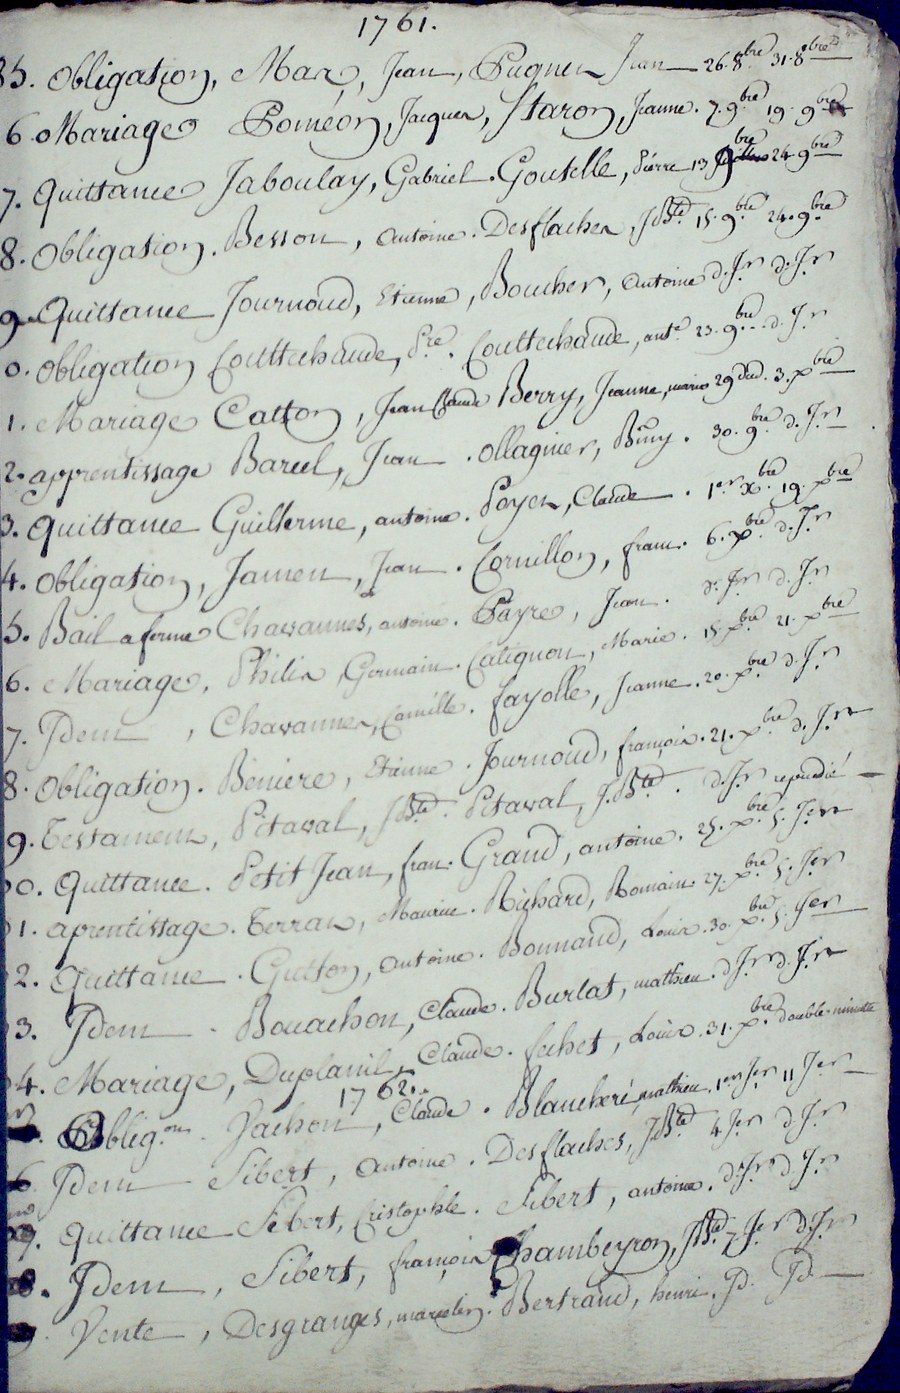 1761.
85. Obligation, Max, Jean, Pugnien Jean 26.8bre 31.8bre
6. Mariage Poméon, Jacques, Staron, Jeanne. 7.9bre 19.9bre
7. Quittance Jaboulay, Gabriel. Goutelle, Pierre 13 9bre 24 9bre
8. Obligation. Besson, antoine. Desflaches, JBte 15.9bre 24.9bre
9. Quittance Journoud, Etienne, Boucher, antoine d. Jr d. Jr
0. Obligation Couttechaude, Pre. Couttechaude, ante 23.9bre d. Jr
1. Mariage Catton, Jean Claude Berry, Jeanne, marie 29 dud. 3. xbre
2. apprentissage Barcel, Jean. Ollagnier, Bmy. 30.9bre d. Jr
3. Quittance Guillerme, antoine. Poyen, Claude. 1er xbre 19. xbre
4. Obligation, Jamen, Jean. Cornillon, franc. 6. xbre d. Jr
5. Bail a ferme Chavannes, antoine. Payre, Jean. d. Jr d. Jr
6. Mariage, Philix, Germain. Catignon, Marie. 15. xbre 21. xbre
7. Idem, Chavannes, Camille. fayolle, Jeanne. 20. xbre d. Jr
8. Obligation. Beniere, Etienne. Journoud, françois. 21. xbre d. Jr
9. Testament, Pitaval, JBte. Pitaval, JBte. d. Jr repudié
0. Quittance. Petit Jean, fran. Grand, antoine. 25. xbre 5. Jer
1. aprentissage. Terras, Maurice. Richard, Romain. 27. xbre 5. Jer
2. Quittance. Gutton, antoine. Bonnand, Louis. 30. xbre 5. Jer
3. Idem. Bouachon, Claude. Burlat, mathieu. d. Jr d. Jr
4. Mariage, Duplanil, Claude. fechet, Louise. 31. xbre double minutte
1762.
Oblig.on. Vachon, Claude. Blancheré, mathieu. 1er Jer 11 Jer
6. Idem Sibert, antoine. Desflaches, JBte 4 Jer d. Jr
7. Quittance Sibert, Cristophle. Sibert, antoine. d. Jr d. Jr
8. Idem, Sibert, françois Chambeyron, JBte 7. Jer d. Jr
Vente, Desgranges, marcelin. Bertrand, henri. Id. Id